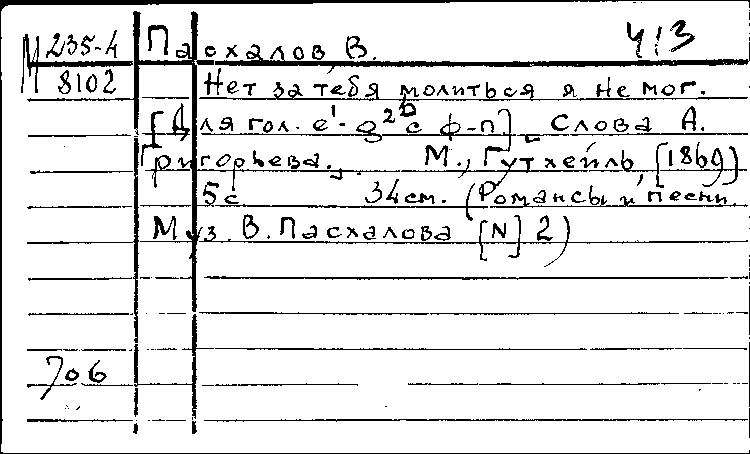 М 235-4 Пасхалов, В. 413
8102 Нет за тебя молиться я не мог.
[Для гол. e¹-g²b с ф-п] Слова А.
Григорьева. М., Гутхейль, [1869]
5с 34см. (Романсы и песни
Муз. В. Пасхалова [N] 2)
706